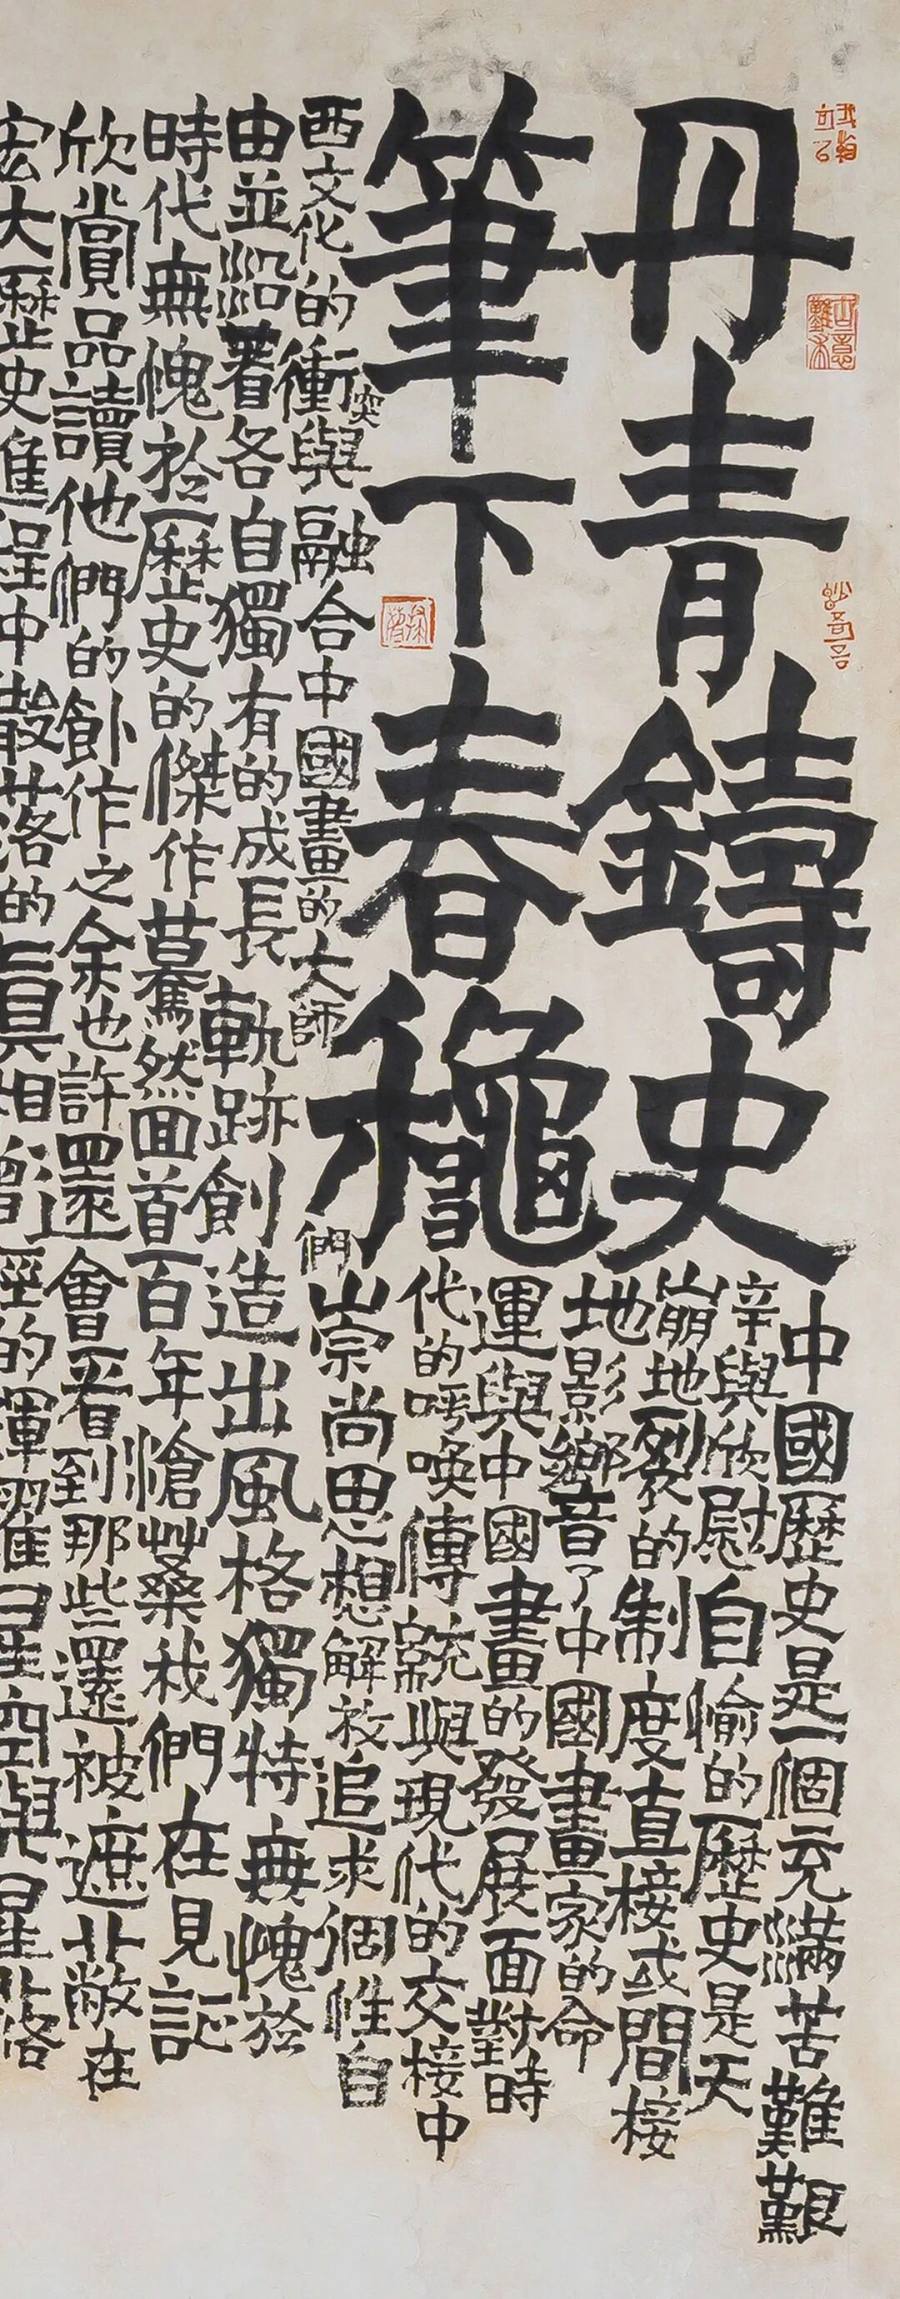 丹青鑄史
筆下春穐
中國歷史是一個充滿苦難艱
辛與欣慰自愉的歷史是天
崩地裂的制度直接或間接
地影響了中國畫家的命
運與中國畫的發展面對時
代的呼喚傳統與現代的交接中
西文化的衝突與融合中國畫的大師
們崇尚思想解放追求個性自
由並沿着各自獨有的成長軌跡創造出風格獨特無愧於
時代無愧於歷史的傑作驀然回首百年愴桑我們在見証
欣賞品讀他們的創作之余也許還會看到那些還被遮蔽在
宏大歷史進程中散落的真相曾經的輝耀星空與星落